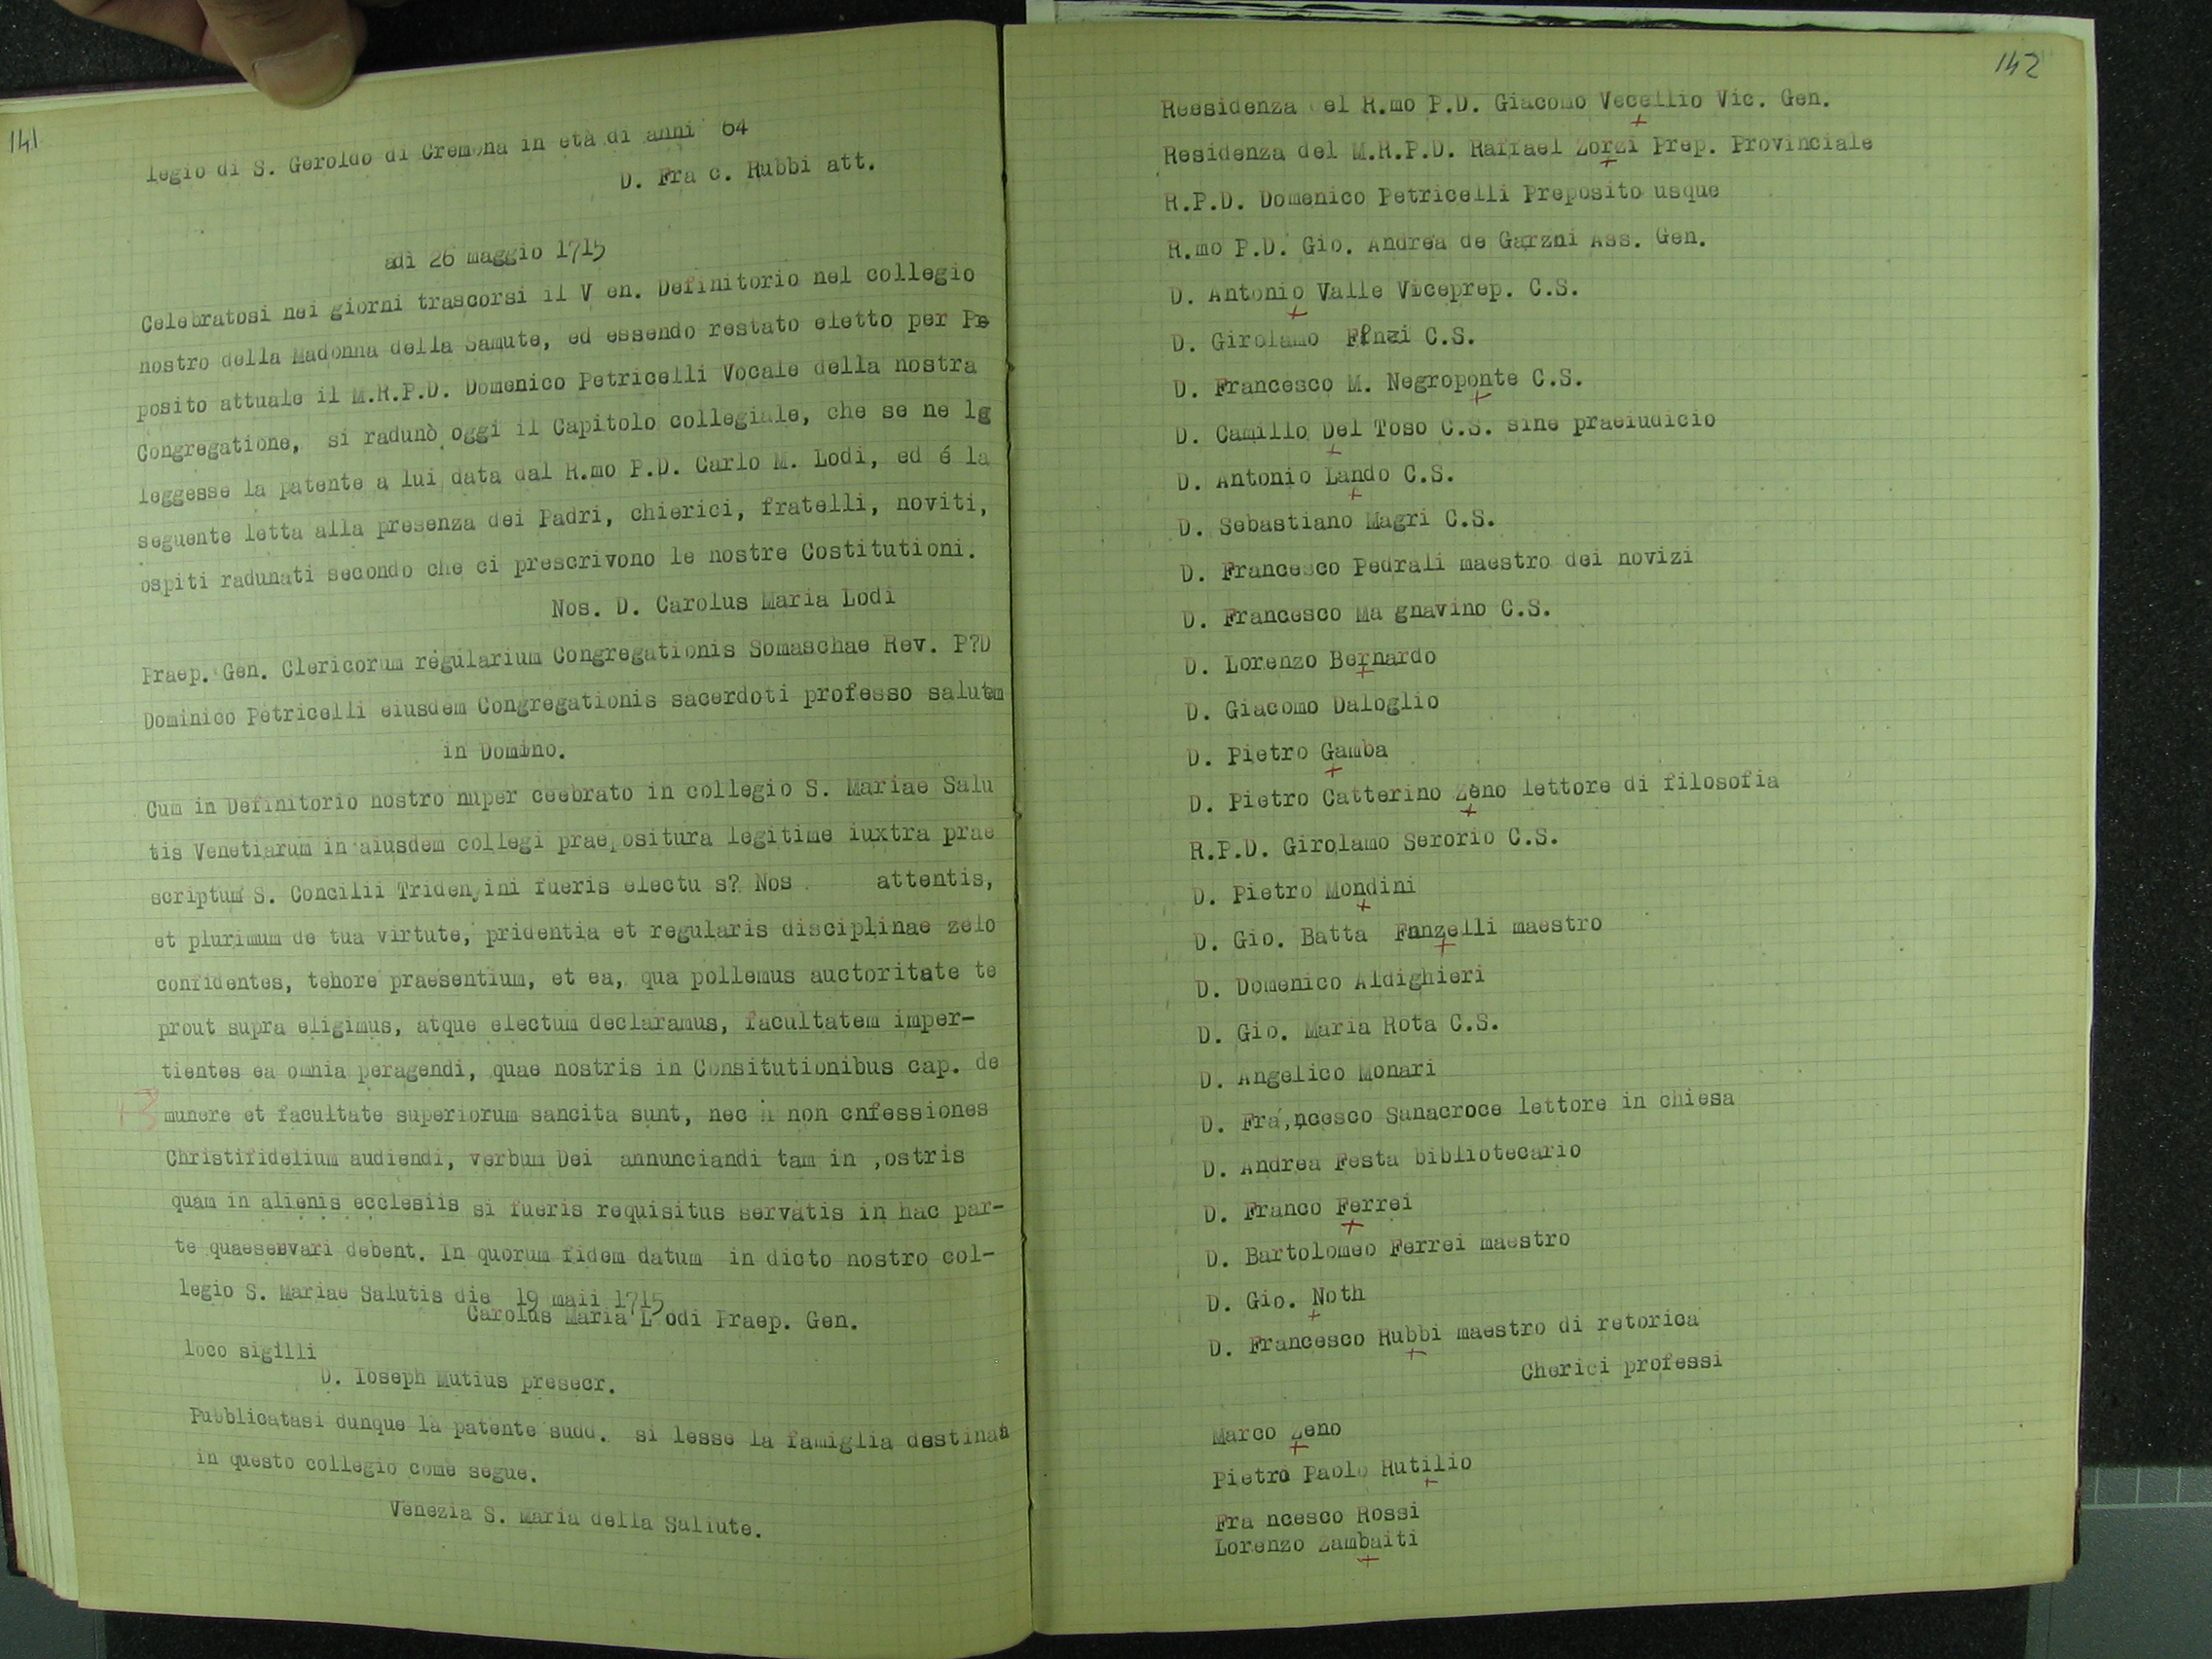 141
legio di S. Geroldo di Cremona in età di anni 64
D. Fra c. Rubbi att.
adì 26 maggio 1715
Celebratosi nei giorni trascorsi il V en. Definitorio nel collegio
nostro della Madonna della Samute, ed essendo restato eletto per Pe
posito attuale il M.R.P.D. Domenico Petricelli Vocale della nostra
Congregatione, si radunò oggi il Capitolo collegiale, che se ne lg
leggesse la patente a lui data dal R.mo P.D. Carlo M. Lodi, ed é la
seguente letta alla presenza dei Padri, chierici, fratelli, noviti,
ospiti radunati secondo che ci prescrivono le nostre Costitutioni.
Nos. D. Carolus Maria Lodi
Praep. Gen. Clericorum régularium Congregationis Somaschae Rev. P?D
Dominico Petricelli eiusdem Congregationis sacerdoti professo salutem
in Domino.
Cum in Definitorio nostro nuper ceebrato in collegio S. Mariae Salu
tis Venetiarum in aiusdem collegi praepositura legitime iuxtra prae
scriptum S. Concilii Triden,ini fueris electu s? Nos attentis,
et plurimum de tua virtute, pridentia et regularis disciplinae zelo
confidentes, tehore praesentium, et ea, qua pollemus auctoritate te
prout supra eligimus, atque electum declaramus, facultatem imper-
tientes ea omnia peragendi, quae nostris in Consitutionibus cap. de
munere et facultate superiorum sancita sunt, nec n non cnfessiones
Christifidelium audiendi, verbum Dei annunciandi tam in ,ostris
quam in alienis ecclesiis si fueris requisitus servatis in hac par-
te quaeservari debent. In quorum fidem datum in dicto nostro col-
legio S. Mariae Salutis die 19 maii 1715
Carolus Maria L odi Praep. Gen.
loco sigilli
D. Ioseph Mutius presecr.
Pubblicatasi dunque la patente sudd. si lesse la famiglia destinaa
in questo collegio come segue.
Venezia S. Maria della Saliute.
142
Reesidenza el R.mo P.D. Giacomo Vecellio Vic. Gen.
Residenza del M.R.P.D. Raffael Zorzi Prep. Provinciale
R.P.D. Domenico Petricelli Preposito usque
R.mo P.D. Gio. Andrea de Garzni Ass. Gen.
D. Antonio Valle Viceprep. C.S.
D. Girolamo Finzi C.S.
D. Francesco M. Negroponte C.S.
D. Camillo Del Toso C.S. sine praeiudicio
D. Antonio Lando C.S.
D. Sebastiano Magri C.S.
D. Francesco Pedrali maestro dei novizi
D. Francesco Ma gnavino C.S.
D. Lorenzo Bernardo
D. Giacomo Daloglio
D. Pietro Gamba
D. Pietro Catterino Zeno lettore di filosofia
R.P.D. Girolamo Serorio C.S.
D. Pietro Mondini
D. Gio. Batta Fanzelli maestro
D. Domenico Aldighieri
D. Gio. Maria Rota C.S.
D. Angelico Monari
D. Fra,ncesco Sanacroce lettore in chiesa
D. Andrea Festa bibliotecario
D. Franco Ferrei
D. Bartolomeo Ferrei maestro
D. Gio. Noth
D. Francesco Rubbi maestro di retorica
Cherici professi
Marco Zeno
Pietro Paolo Rutilio
Fra ncesco Rossi
Lorenzo Zambaiti